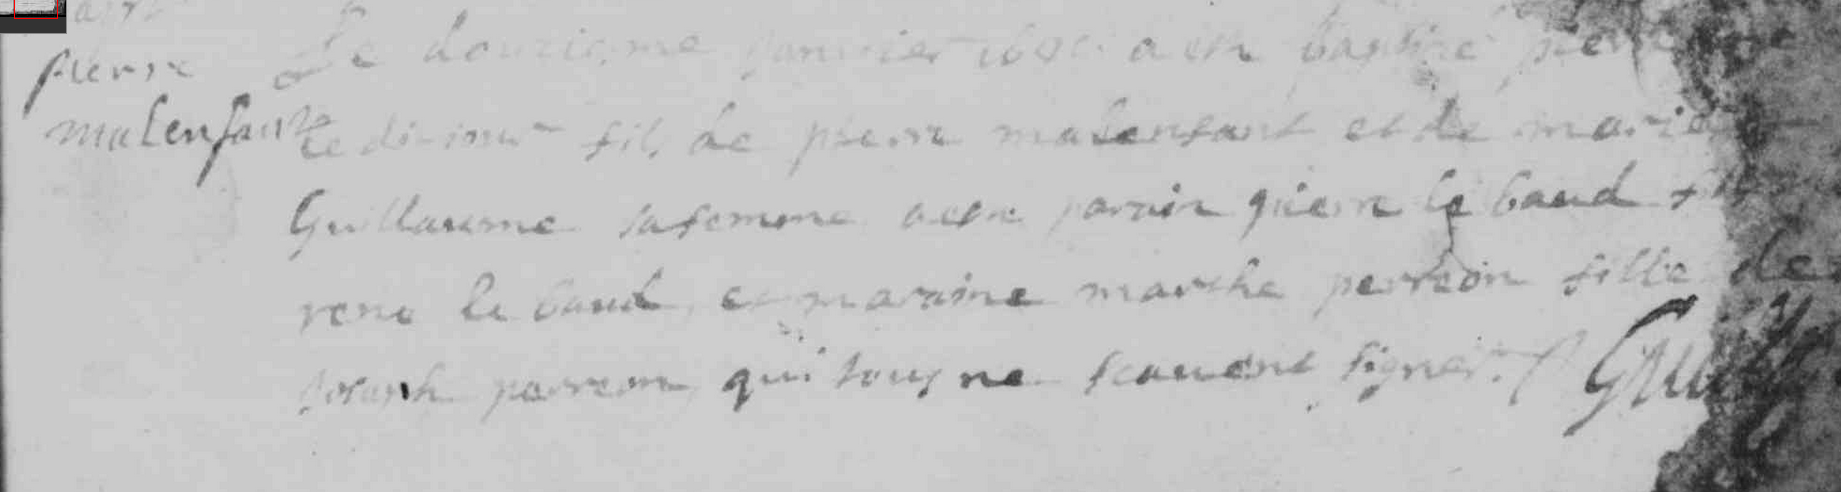 pierre
malenfant
Le douziesme janvier a este baptisé pierre
fils de pierre malenfant et de marie
Guillaume sa femme a este parain pierre le baud fils
rene le baud, et maraine marthe perreon fille de
joseph perreon, qui tous ne scauent signer.